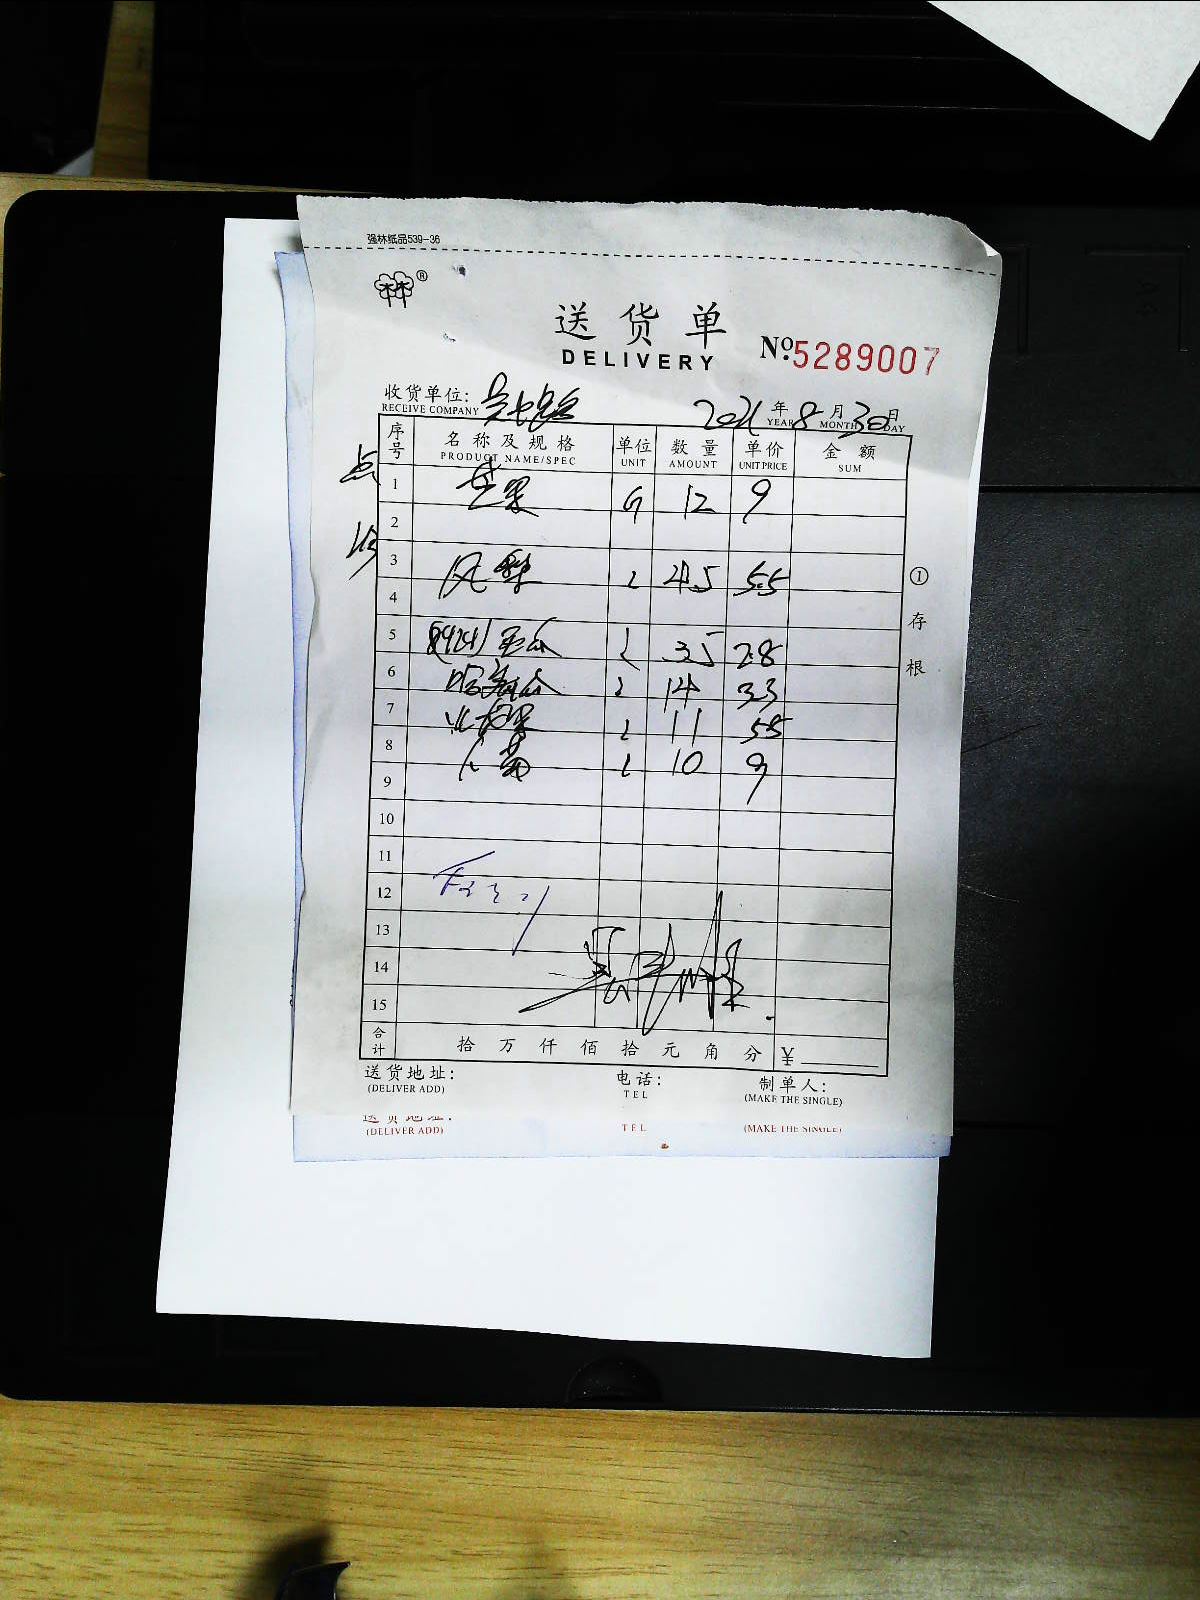 强林纸品539-36
林林®
送货单
DELIVERY
№5289007
收货单位:
RECEIVE COMPANY
2021年8月30日
YEAR MONTH DAY
序号 名称及规格 单位 数量 单价 金额
PRODUCT NAME/SPEC UNIT AMOUNT UNIT PRICE SUM
点
1 芒果 12 9
2
3 45 5.5
4
5 (8424) 西瓜 35 2.8
6 哈密瓜 14 3.3
7 火龙果 11 5.5
8 10 9
9
10
11
12
13
14
15
合计 拾 万 仟 佰 拾 元 角 分 ¥
①存根
送货地址: 电话: 制单人:
(DELIVER ADD) TEL (MAKE THE SINGLE)
送货地址:
(DELIVER ADD) TEL (MAKE THE SINGLE)